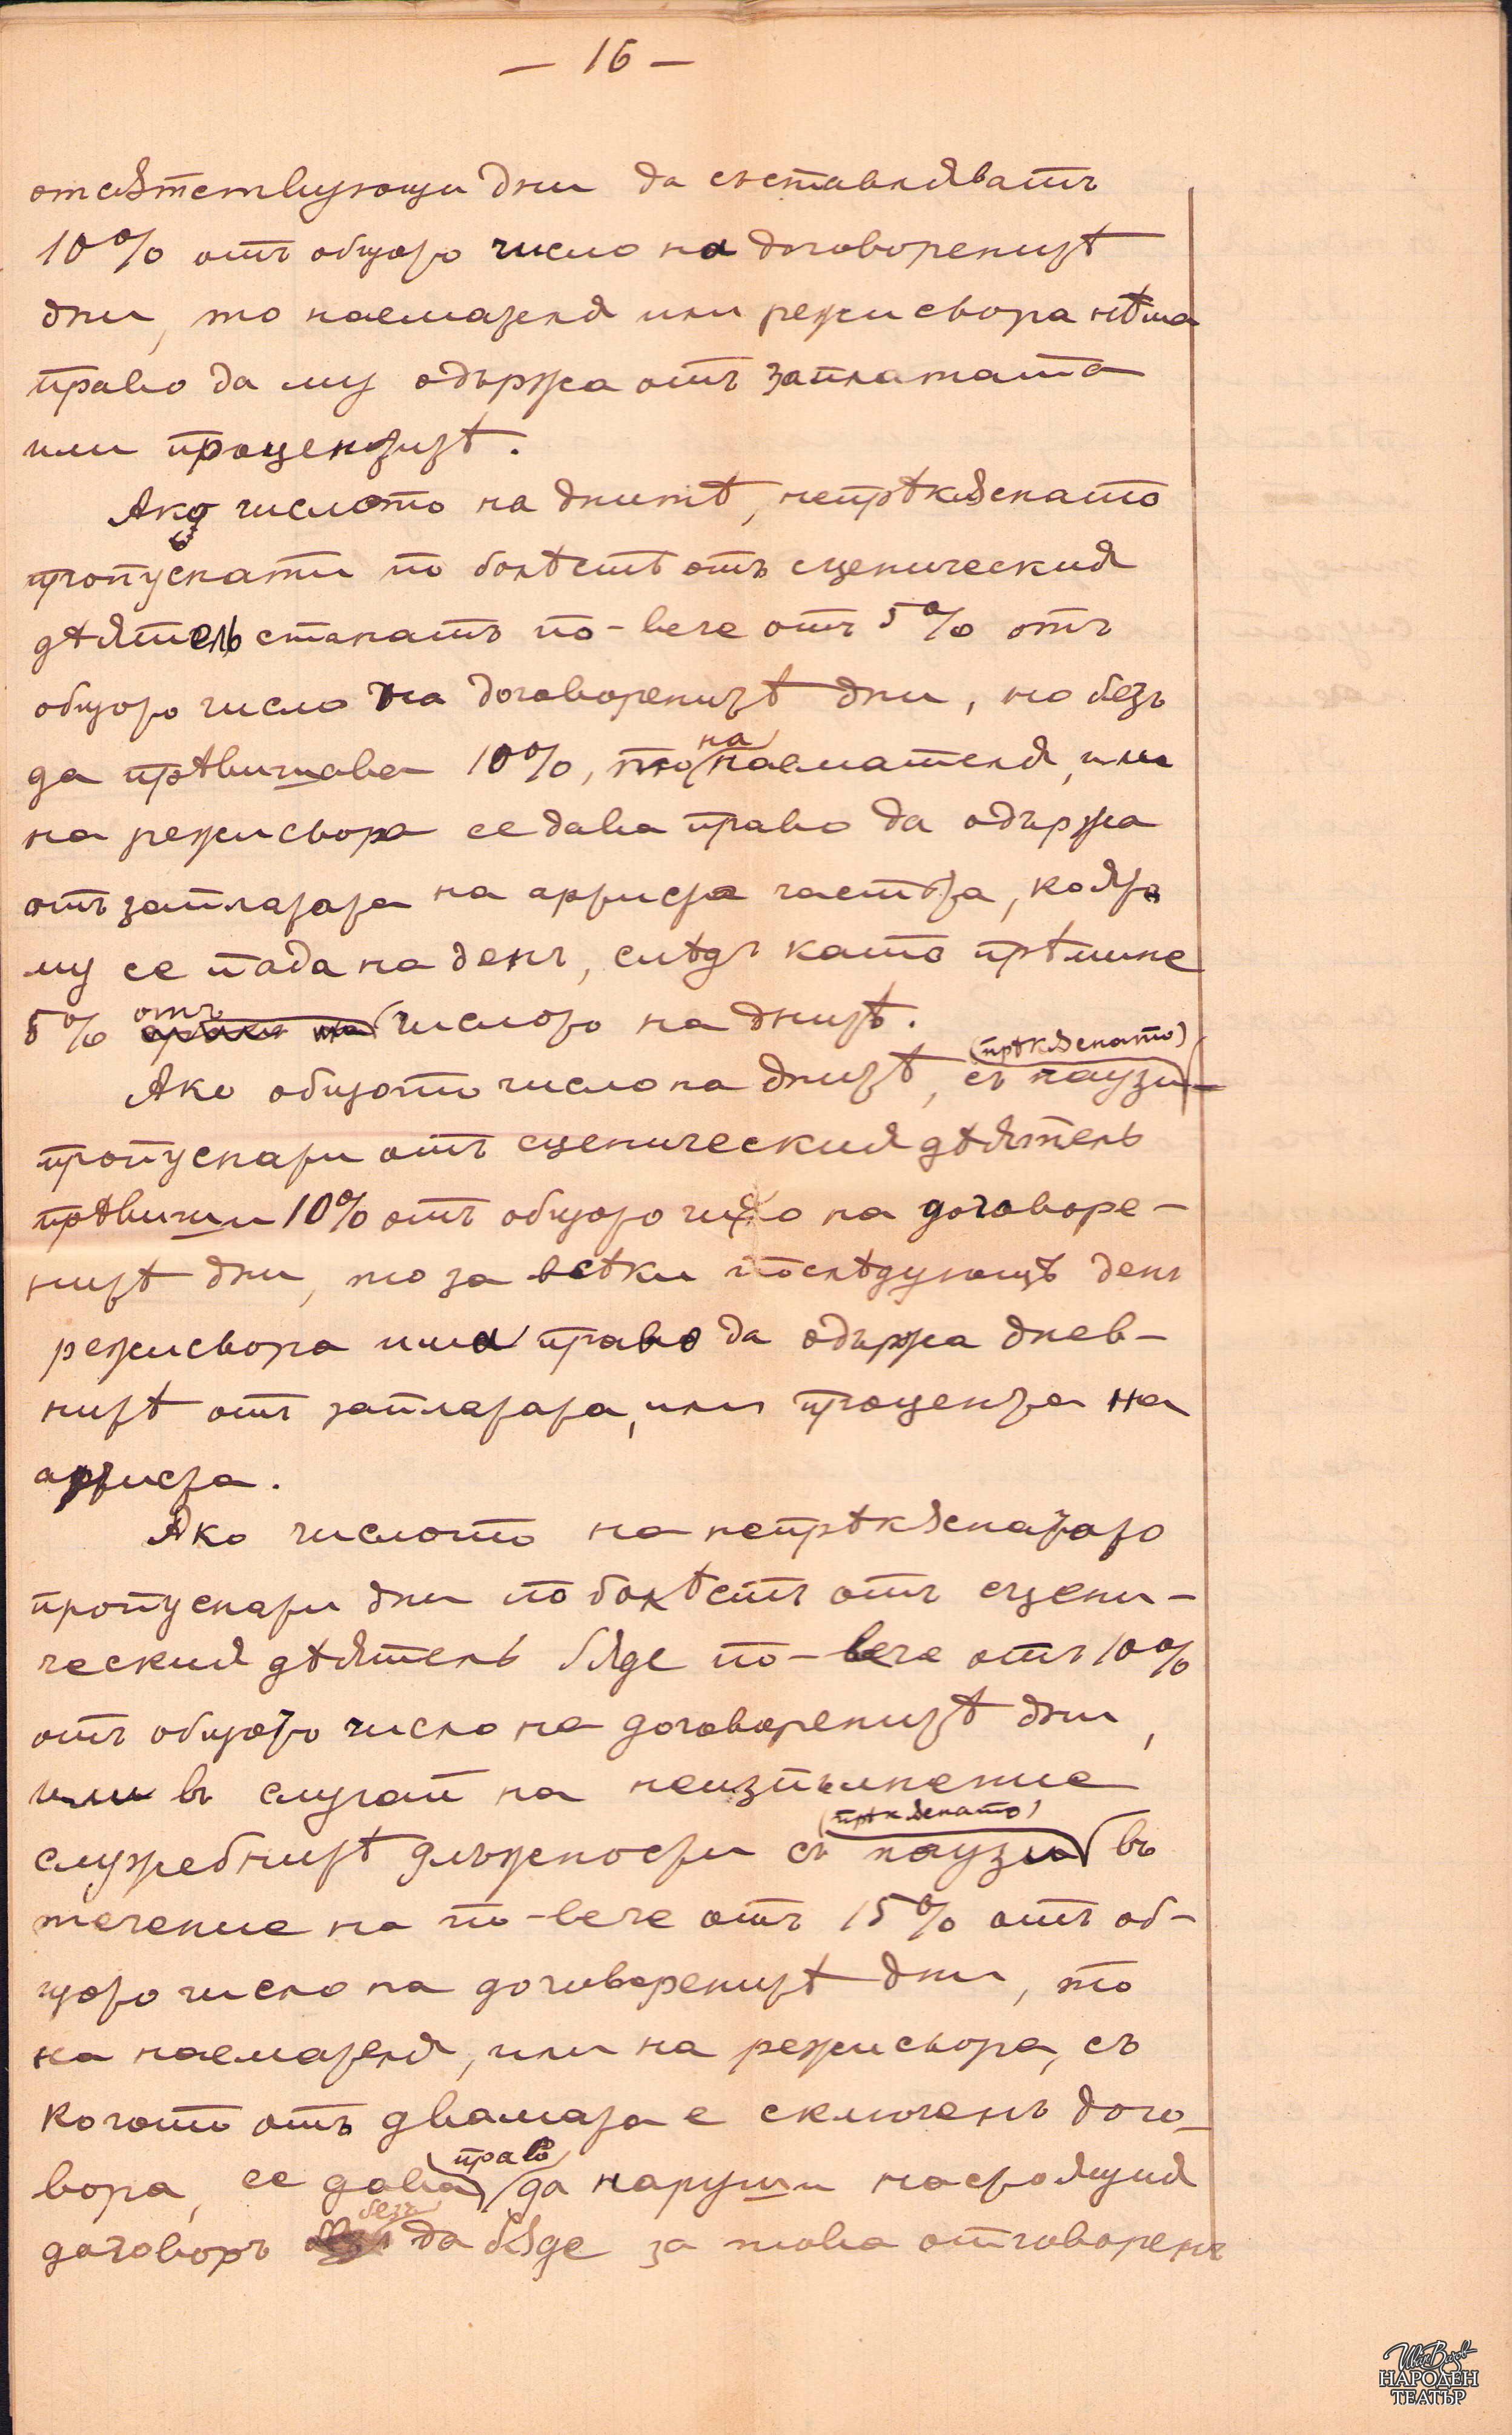 — 16 —
отсѫтствующи дни да съставляватъ
10% отъ общото число на договоренитѣ
дни, то наемателя или режисьора нѣма
право да му одържа отъ заплатата
или процентитѣ.
Ако числото на днитѣ, непрѣкѫснато
пропуснати по болѣсть отъ сценическия
дѣятель станатъ по-вече отъ 5% отъ
общото число на договоренитѣ дни, но безъ
да прѣвишава 10%, то на наемателя, или
на режисьора се дава право да одържа
отъ заплатата на артиста частьта, която
му се пада на день, слѣдъ като прѣмине
5% отъ числото на днитѣ.
Ако общото число на днитѣ, (прѣкѫснато) съ паузи—
пропуснати отъ сценическия дѣятель
прѣвиши 10% отъ общото число на договоре-
нитѣ дни, то за всѣки послѣдующъ день
режисьора има право да одържа днев-
нитѣ отъ заплатата, или процента на
артиста.
Ако числото на непрѣкѫснатото
пропуснати дни по болѣсть отъ сцени-
ческия дѣятель бѫде по-вече отъ 10%
отъ общото число на договоренитѣ дни,
или въ случай на неизпълнение
служебнитѣ длъжности (прѣкѫснато) съ паузи въ
течение на по-вече отъ 15% отъ об-
щото число на договоренитѣ дни, то
на наемателя, или на режисьора, съ
когото отъ двамата е сключенъ дого-
вора, се дава право да наруши настоящия
договоръ безъ да бѫде за това отговоренъ
Иван Вазов
НАРОДЕН
ТЕАТЪР